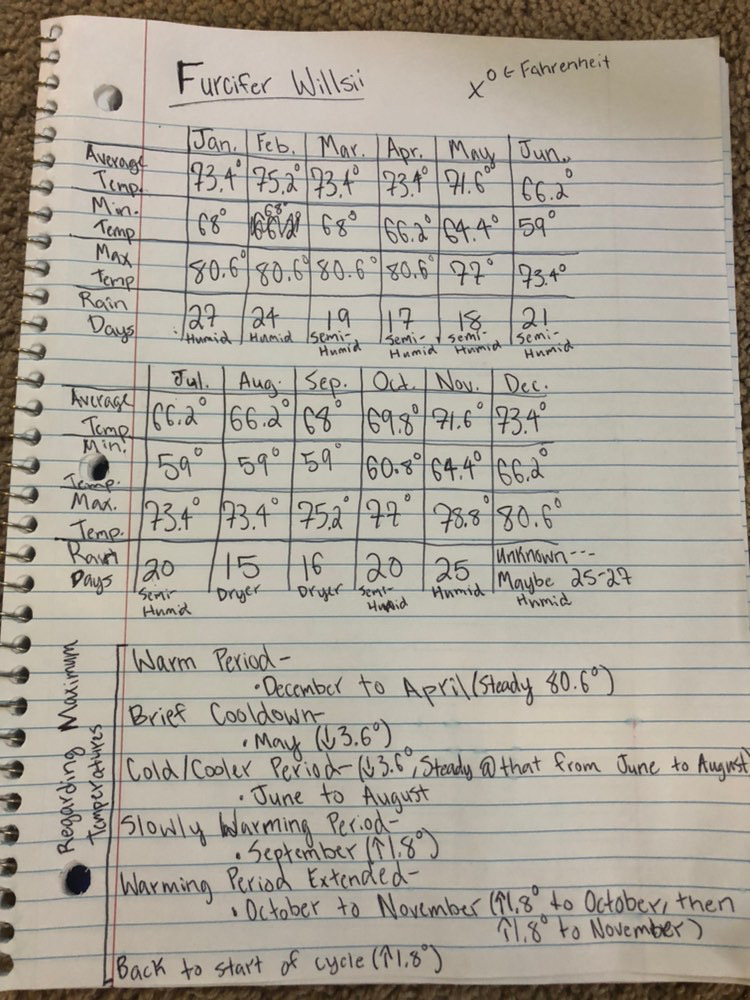 Furcifer Willsii
x° ← Fahrenheit
Jan. Feb. Mar. Apr. May Jun.
Average Temp. 73.4° 75.2° 73.4° 73.4° 71.6° 66.2°
Min. Temp 68° 68° 68° 66.2° 64.4° 59°
Max Temp 80.6° 80.6° 80.6° 80.6° 77° 73.4°
Rain Days 27 24 19 17 18 21
Humid Humid Semi-Humid Semi-Humid Semi-Humid Semi-Humid
Jul. Aug. Sep. Oct. Nov. Dec.
Average Temp 66.2° 66.2° 68° 69.8° 71.6° 73.4°
Min. Temp. 59° 59° 59° 60.8° 64.4° 66.2°
Max. Temp. 73.4° 73.4° 75.2° 77° 78.8° 80.6°
Rain Days 20 15 16 20 25 Unknown--- Maybe 25-27
Semi-Humid Dryer Dryer Semi-Humid Humid Humid
Regarding Maximum Temperatures
Warm Period-
• December to April (Steady 80.6°)
Brief Cooldown-
• May (↓3.6°)
Cold/Cooler Period-(↓3.6°, Steady @ that from June to August)
• June to August
Slowly Warming Period-
• September (↑1.8°)
Warming Period Extended-
• October to November (↑1.8° to October, then
↑1.8° to November)
Back to start of cycle (↑1.8°)